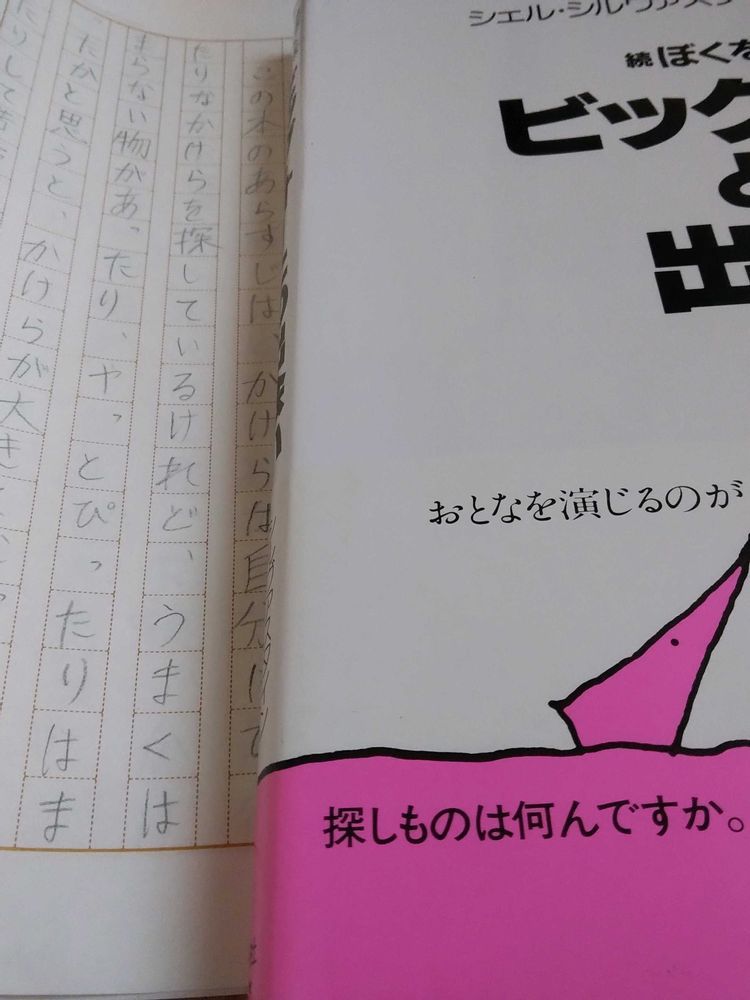 シェル・シルヴァスタ
続ぼくを
ビッグ
と
出
おとなを演じるのが
探しものは何んですか。
この本のあらすじは、かけらは自分にて
たりなかけらを探しているけれど、うまくは
まらない物があったり、ヤっとぴったりはま
たかと思うと、かけらが大き
たりして